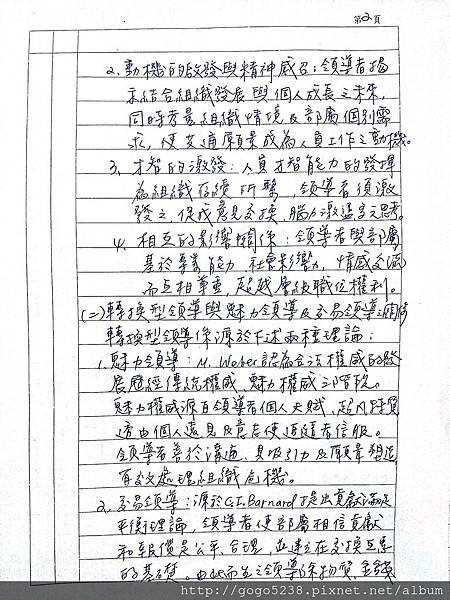 第2頁
2.動機的啟發與精神感召:領導者揭
示結合組織發展與個人成長之未來,
同時考量組織情境及部屬個別需
求,使共通願景成為人員工作之動機。
3.才智的激發:人員才智能力的發揮
為組織存續所繫,領導者須激
發之,促成意見交換、腦力激盪與思考。
4.相互的影響關係:領導者與部屬
基於專業能力、社會影響力、情感交流
而互相尊重,超越層級職位權利。
(二)轉換型領導與魅力領導及交易領導之關係
轉換型領導係源於下述兩種理論:
1.魅力領導:M. Weber認為合法權威的發
展歷經傳統權威、魅力權威三階段。
魅力權威源自領導者個人天賦、超凡特質
透由個人遠見及意志使追隨者信服。
領導者善於溝通,具吸引力及願景塑造,
有效處理組織危機。
2.交易領導:源於C.I. Barnard提出貢獻滿足
平衡理論,領導者使部屬相信貢獻
和報償是公平、合理,並建立在交換互惠
的基礎。由此而生之領導除物質、金錢
http://gogo5238.pixnet.net/album